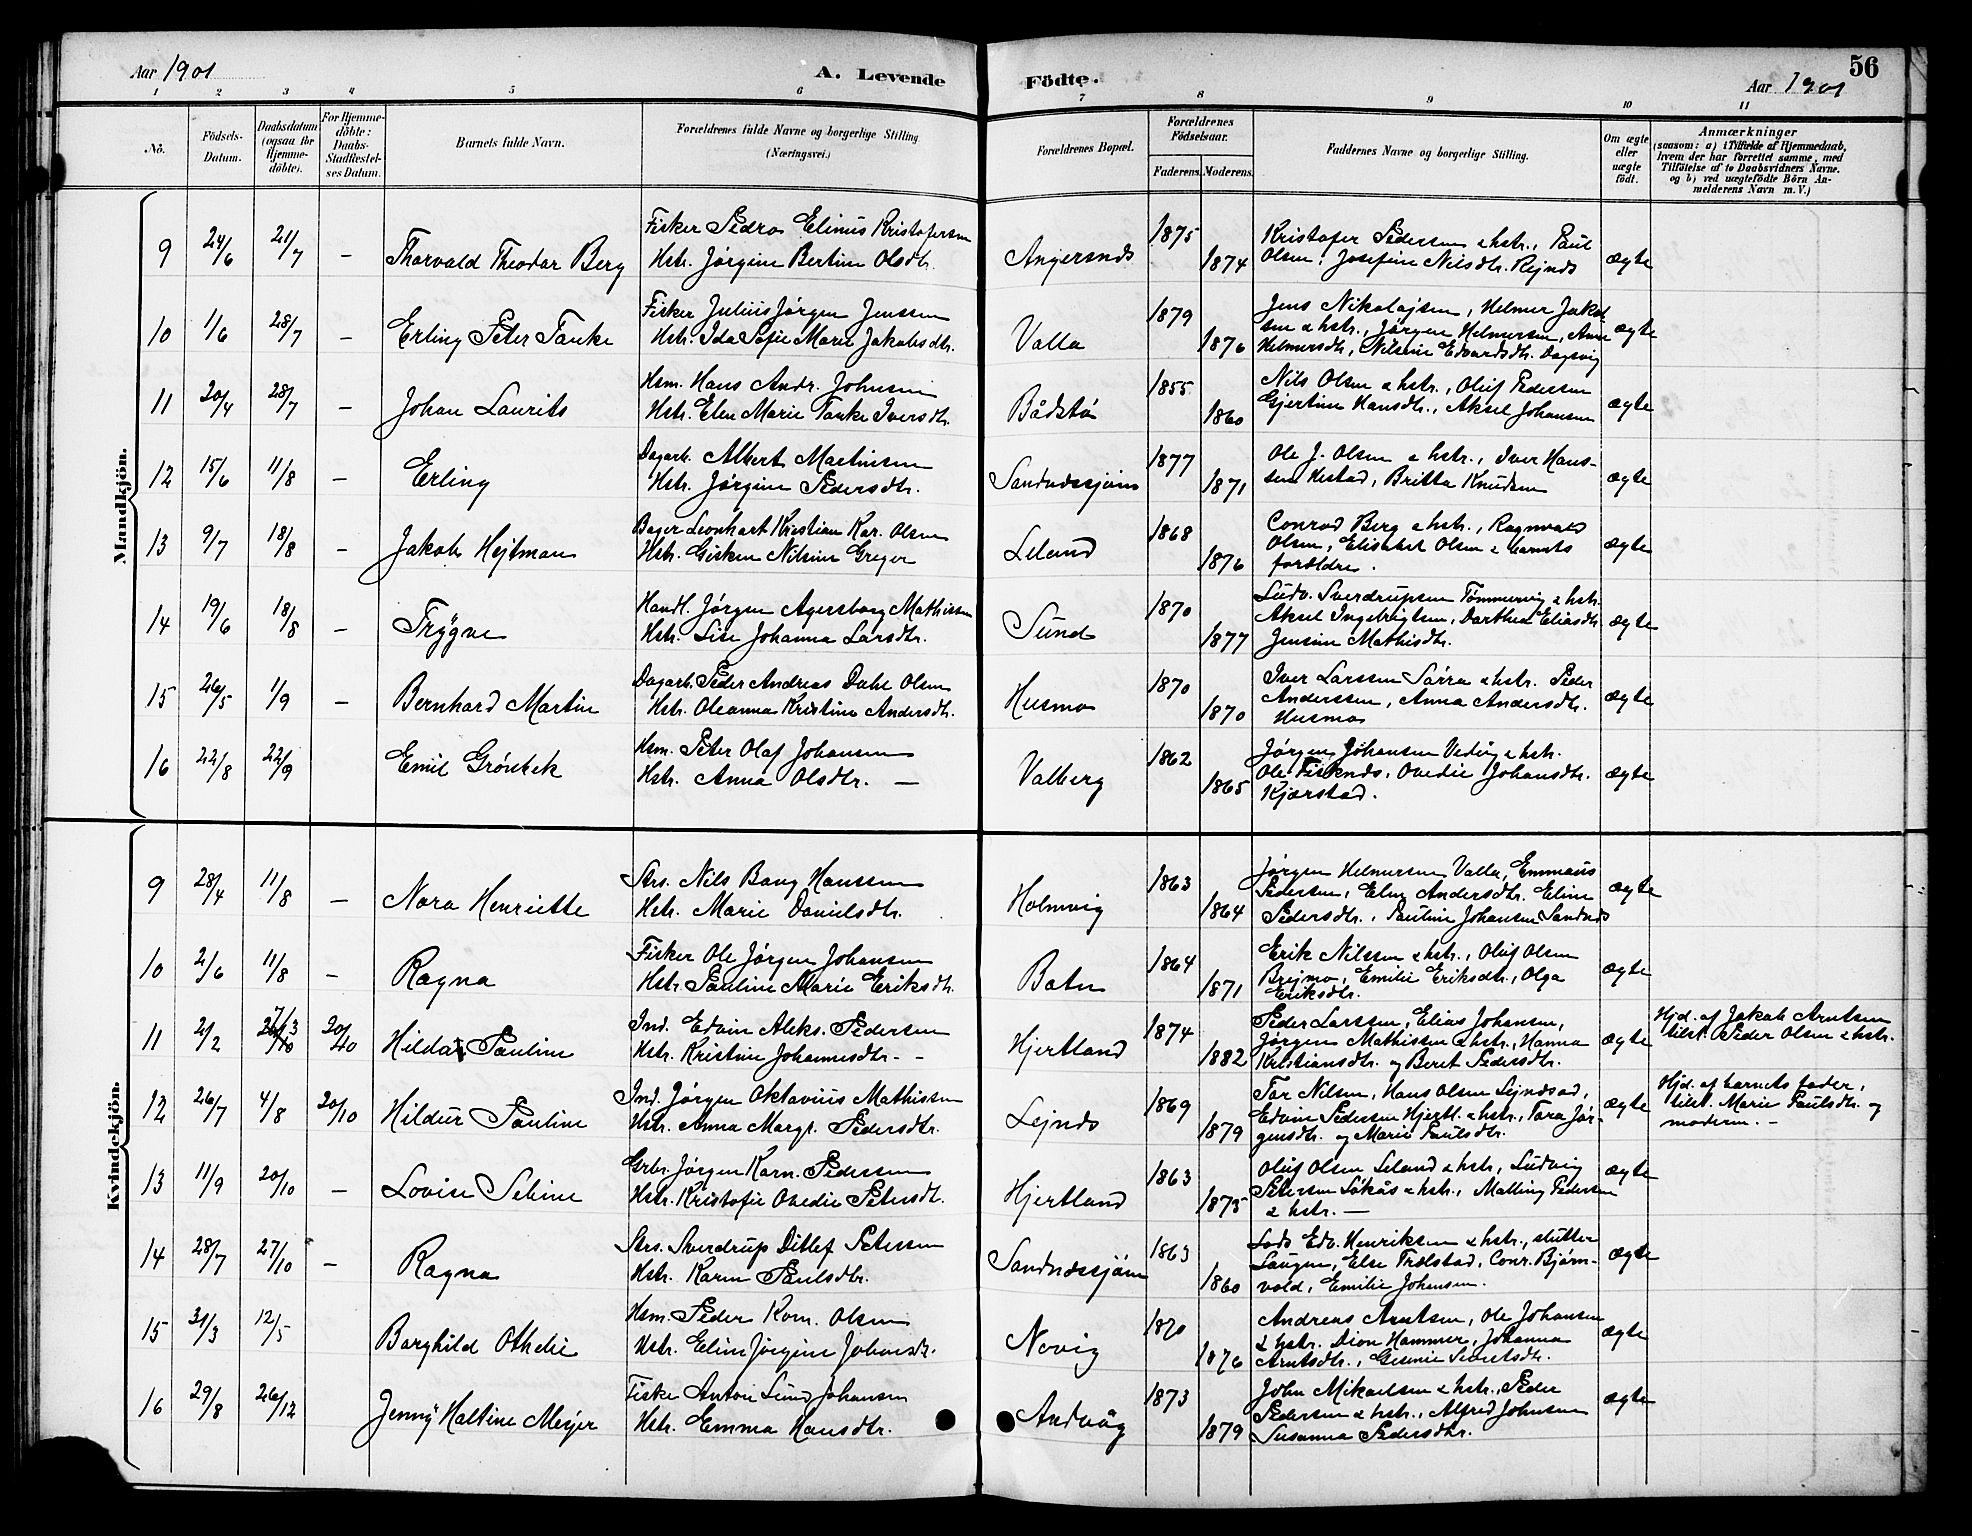 Aar 1901
A. Levende Födte.
Aar 1901
56
1 2 3 4 5 6 7 8 9 10 11
No.
Födsels-
Datum.
Daabsdatum
(ogsaa for
Hjemme-
döbte).
For Hjemme-
döbte:
Daabs-
Stadfæstel-
ses Datum.
Barnets fulde Navn.
Forældrenes fulde Navne og borgerlige Stilling
(Næringsvei.)
Forældrenes Bopæl.
Forældrenes
Födselsaar.
Faderens. Moderens.
Faddernes Navne og borgerlige Stilling.
Om ægte
eller
uægte
födt.
Anmærkninger
(saasom: a) i Tilfælde af Hjemmedaab,
hvem der har forrettet samme, med
Tilföielse af to Daabsvidners Navne.
og b) ved uægtefödte Börn An-
melderens Navn m. V.)
Mandkjön.
9 24/6 21/7 - Thorvald Theodor Berg
Fisker Pedro Elinus Kristofersen
Hstr. Jørgine Bertine Olsdtr.
Angersnds 1875 1874
Kristofer Pedersen & hstr., Paul
Olsen, Josefine Nilsdtr. Rejnds
ægte
10 1/6 28/7 - Erling Peter Tanke
Fisker Julius Jørgen Jenssen
Hstr. Ida Sofie Marie Jakobsdtr.
Valla 1879 1876
Jens Nikolajsen, Helmer Jakob
sen & hstr., Jørgen Helmersen, Anne
Helmersdtr., Nilsine Edvardsdtr. Dagsvig
ægte
11 20/4 28/7 - Johan Laurits
Hsm. Hans Andr. Johnsen
Hstr. Elen Marie Tanke Iversdtr.
Bådstø 1855 1860
Nils Olsen & hstr., Oluf Pedersen
Gjertine Hansdtr., Aksel Johansen
ægte
12 15/6 11/8 - Erling
Dagarb. Albert Martinsen
Hstr. Jørgine Pedersdtr.
Sandnæssjøen 1877 1871
Ole J. Olsen & hstr., Iver Hans-
sen Hestad, Britta Knudsen
ægte
13 9/7 18/8 - Jakob Hejtman
Bager Leonhart Kristian Kar. Olsen
Hstr. Gisken Nilsine Greger
Leland 1868 1876
Conrad Berg & hstr., Ragnvald
Olsen, Elisabet Olsen & barnets
forældre.
ægte
14 19/6 18/8 - Trygve
Handl. Jørgen Agersborg Mathissen
Hstr. Lise Johanna Larsdtr.
Sund 1870 1877
Ludv. Sverdrupsen Tømmervig & hstr.
Aksel Ingebrigtsen, Dorthea Eliasdtr
Jensine Mathisdtr.
ægte
15 26/5 1/9 - Bernhard Martin
Dagarb. Peder Andreas Dahl Olsen
Hstr. Oleanna Kristine Andersdtr.
Husmo 1870 1870
Iver Larssen Sørra & hstr. Peder
Anderssen, Anna Andersdtr.
Husmo
ægte
16 22/8 22/9 Emil Grønbek
Hsm. Peter Olaf Johansen
Hstr. Anna Olsdtr. -
Valberg 1862 1865
Jørgen Johansen Veding & hstr.
Ole Fisknds, Ovedie Johansdtr.
Kjærstad.
ægte
Kvindekjön.
9 28/4 11/8 - Nora Henriette
Strs. Nils Bang Hanssen
Hstr. Marie Danielsdtr.
Holmvig 1863 1864
Jørgen Helmersen Valla, Emmaus
Pedersen, Elen Andersdtr. Eline
Pedersdtr., Pauline Johansen Sandnds
ægte
10 2/6 11/8 - Ragna
Fisker Ole Jørgen Johansen
Hstr. Pauline Marie Eriksdtr.
Botn 1864 1871
Erik Nilssen & hstr., Oluf Olsen
Brejmo, Emilie Eriksdtr., Olga
Eriksdtr.
ægte
11 2/2 7/3 20/10 Hilda Pauline
Ind. Edvin Aleks. Pedersen
Hstr. Kristine Johannesdtr. -
Hjertland 1874 1882
Peder Larssen, Elias Johansen,
Jørgen Mathissen & hstr., Hanna
Kristiansdtr. og Beret Pedersdtr.
ægte
Hjd. af Jakob Arntsen
tilst. Peder Olsen & hstr.
12 26/7 4/8 20/10 Hildur Pauline
Ind. Jørgen Oktavius Mathissen
Hstr. Anna Margr. Pedersdtr.
Lejnds 1869 1879
Tor Nilsen, Hans Olsen Lejndsød,
Edvin Pedersen Hjertl. & hstr., Tora Jør-
gensdtr. og Marie Paulsdtr.
ægte
Hjd. af barnets fader,
tilst. Marie Paulsdtr. og
moderen. -
13 11/9 20/10 - Lovise Seline
Grbr. Jørgen Korn. Pederssen
Hstr. Kristofie Ovedie Petersdtr.
Hjertland 1863 1875
Oluf Olsen Leland & hstr., Ludvig
Petersen Løkås & hstr., Malling Pedersen
& hstr. -
ægte
14 28/7 27/10 - Ragna
Strs. Sverdrup Ditlef Peterssen
Hstr. Karen Paulsdtr.
Sandnæssjøen 1863 1860
Lods Edv. Henriksen & hstr.,
Laugen, Else Trælstad, Conr. Bjørn-
vold, Emilie Johansen.
ægte
15 31/3 12/5 Borghild Othelie
Hsm. Peder Korn. Olsen
Hstr. Eline Jørgine Johansdtr.
Novig 1870 1876
Andreas Arntsen, Ole Johansen
& hstr. Dion Hammer, Johanna
Arntsdtr., Gesinie Sivertsdtr.
ægte
16 29/8 26/12 Jenny Haltine Mejer
Fisker Anton Lund Johansen
Hstr. Emma Hansdtr.
Andvåg 1873 1879
John Mikaelsen & hstr., Peder
Pedersen & hstr., Alfred Johnsen
Susanna Pedersdtr.
ægte